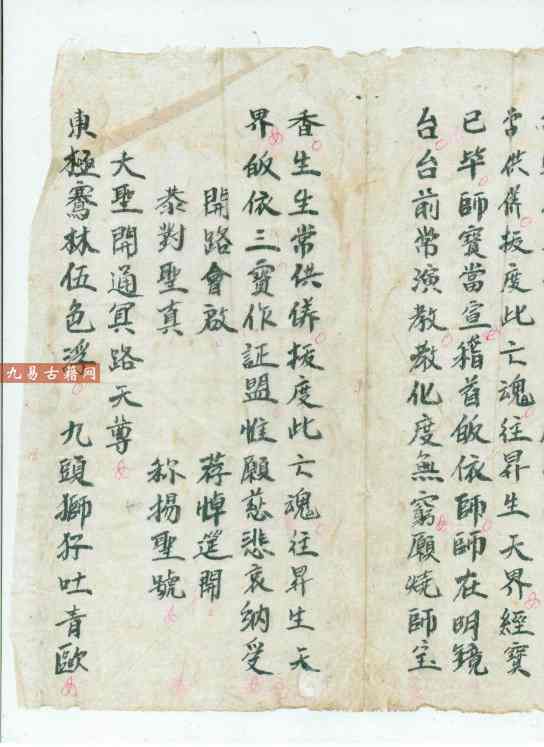 常供養拔度此亡魂往昇生天界經寶
已毕師寶當宣稽首皈依師師在明鏡
台台前常演教教化度無窮願焼師宝
香生生常供养拔度此亡魂往昇生天
界皈依三寶作証盟惟願慈悲哀納受
開路會啟 荐悼筵開
恭對聖真 称揚聖號
大聖開通冥路天尊
東極騫林伍色浮 九頭獅子吐青
九易古籍网